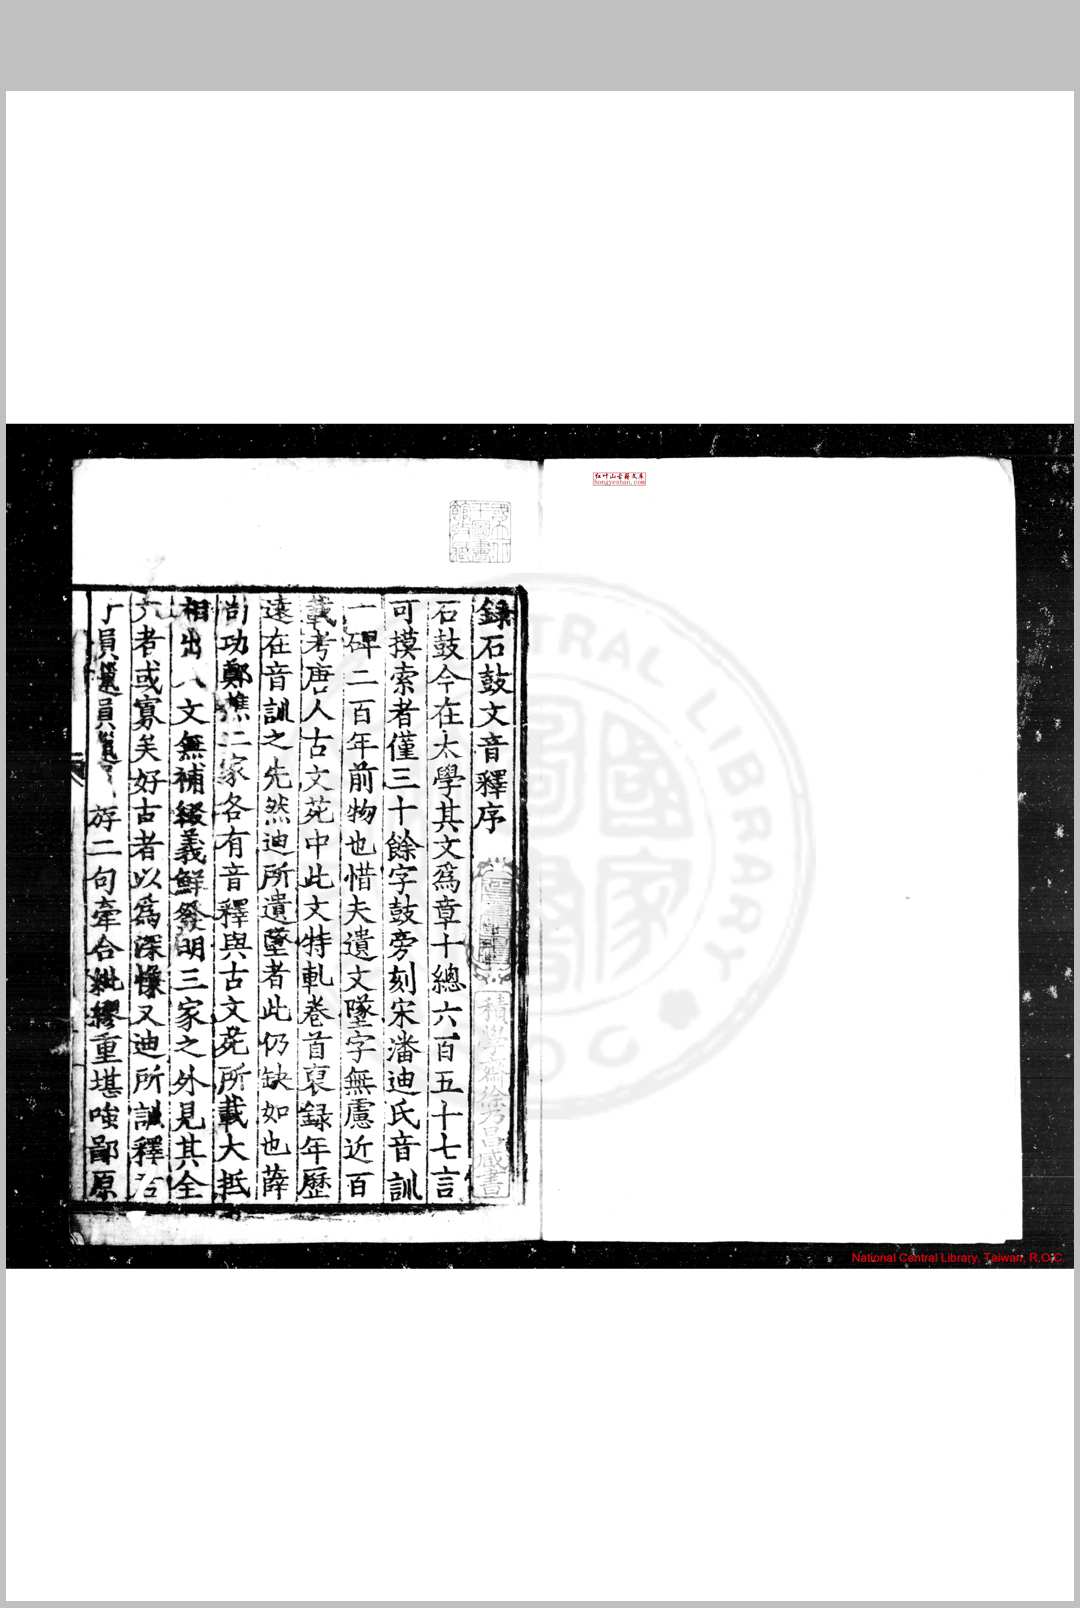 録石鼓文音釋序
石鼓今在太學其文為章十總六百五十七言
可摸索者僅三十餘字鼓旁刻宋潘迪氏音訓
一碑二百年前物也惜夫遺文墜字無慮近百
載考唐人古文苑中此文特軋卷首裒録年歷
遠在音訓之先然迪所遺墜者此仍缺如也薛
尚功鄭樵二家各有音釋與古文苑所載大抵
相出入文無補綴義鮮發明三家之外見其全
六者或寡矣好古者以為深慊又迪所訓釋
員獵員 斿二句牽合紕繆重堪嗤鄙原
積學齋徐乃昌藏書
红叶山古籍文库
hongyeshan.com
CENTRAL LIBRARY
國家
ROC
National Central Library, Taiwan, R.O.C